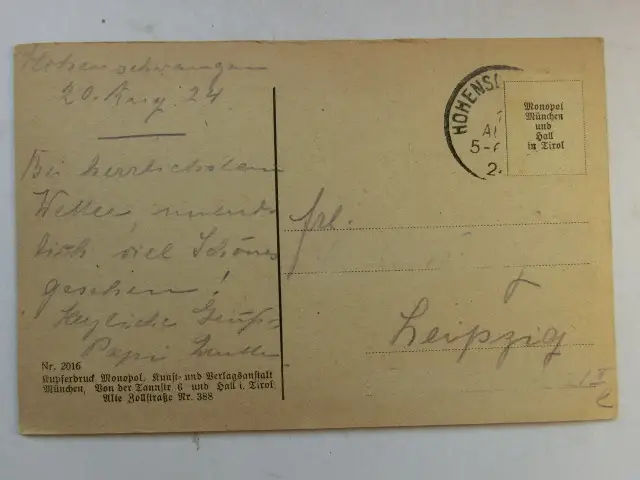 Hohenschwangau
20. Aug. 24
Bei herrlichstem
Wetter, unend-
lich viel Schönes
gesehen!
Herzliche Grüße
Papi
Nr. 2016
Kupferdruck Monopol, Kunst- und Verlagsanstalt
München, Von der Tannstr. 6 und Hall i. Tirol
Alte Zollstraße Nr. 388
HOHENS
5-6
2.
Monopol
München
und
Hall
in Tirol
Frl.
Leipzig